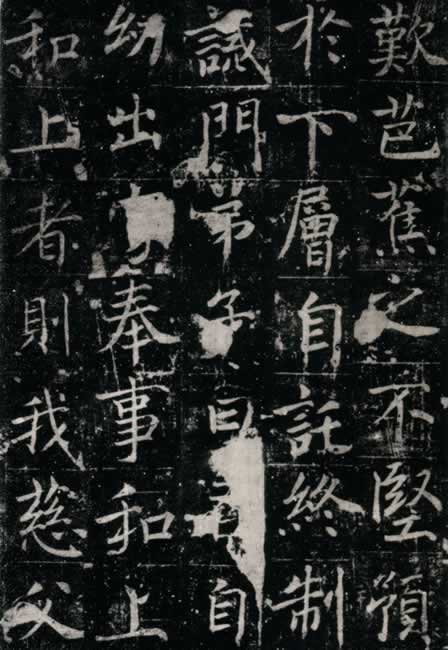 歎芭蕉之不堅預
於下層自託終制
誡門弟子曰自
幼出奉事和上
和上者則我慈父